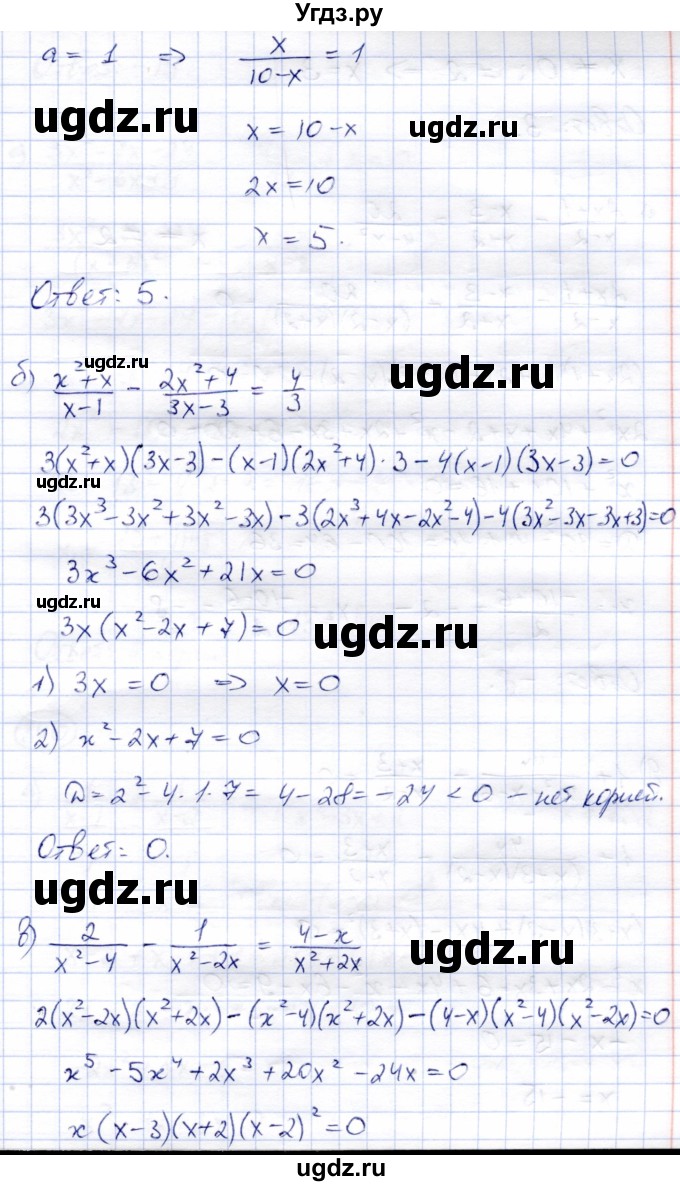 Угдз.ру
a = 1 => x/(10-x) = 1
ugdz.ru
x = 10 - x
ugdz.ru
2x = 10
x = 5.
Ответ: 5.
ugdz.ru
б) (x²+x)/(x-1) - (2x²+4)/(3x-3) = 4/3
ugdz.ru
3(x²+x)(3x-3) - (x-1)(2x²+4)·3 - 4(x-1)(3x-3) = 0
ugdz.ru
3(3x³-3x²+3x²-3x) - 3(2x³+4x-2x²-4) - 4(3x²-3x-3x+3) = 0
3x³ - 6x² + 21x = 0
ugdz.ru
3x(x² - 2x + 7) = 0
ugdz.ru
1) 3x = 0 => x = 0
2) x² - 2x + 7 = 0
D = 2² - 4·1·7 = 4 - 28 = -24 < 0 - нет корней.
Ответ: 0.
ugdz.ru
в) 2/(x²-4) - 1/(x²-2x) = (4-x)/(x²+2x)
ugdz.ru
2(x²-2x)(x²+2x) - (x²-4)(x²+2x) - (4-x)(x²-4)(x²-2x) = 0
x⁵ - 5x⁴ + 2x³ + 20x² - 24x = 0
x(x-3)(x+2)(x-2)² = 0
ugdz.ru
ugdz.ru
ugdz.ru